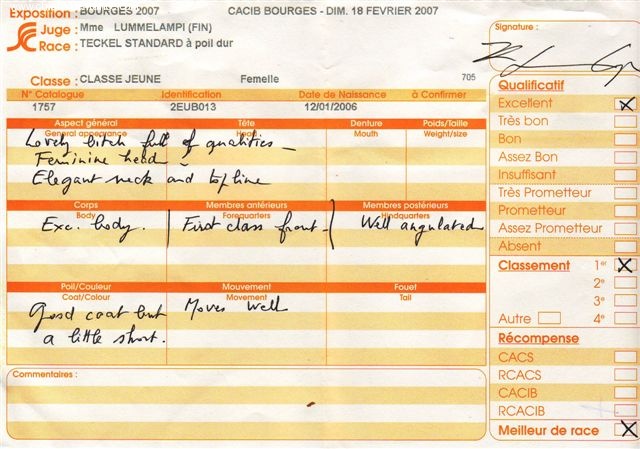 Exposition : BOURGES 2007 CACIB BOURGES - DIM. 18 FEVRIER 2007
Juge : Mme LUMMELAMPI (FIN)
Race : TECKEL STANDARD à poil dur
Signature :
Classe : CLASSE JEUNE Femelle 705
N° Catalogue Identification Date de Naissance à Confirmer
1757 2EUB013 12/01/2006
Aspect général Tête Denture Poids/Taille
General appearance Head Mouth Weight/size
Lovely bitch full of qualities -
Feminine head -
Elegant neck and topline
Corps Membres antérieurs Membres postérieurs
Body Forequarters Hindquarters
Exc. body. First class front - Well angulated
Poil/Couleur Mouvement Fouet
Coat/Colour Movement Tail
Good coat but Moves well
a little short.
Commentaires :
Qualificatif
Excellent X
Très bon
Bon
Assez Bon
Insuffisant
Très Prometteur
Prometteur
Assez Prometteur
Absent
Classement 1er X
2e
3e
Autre 4e
Récompense
CACS
RCACS
CACIB
RCACIB
Meilleur de race X